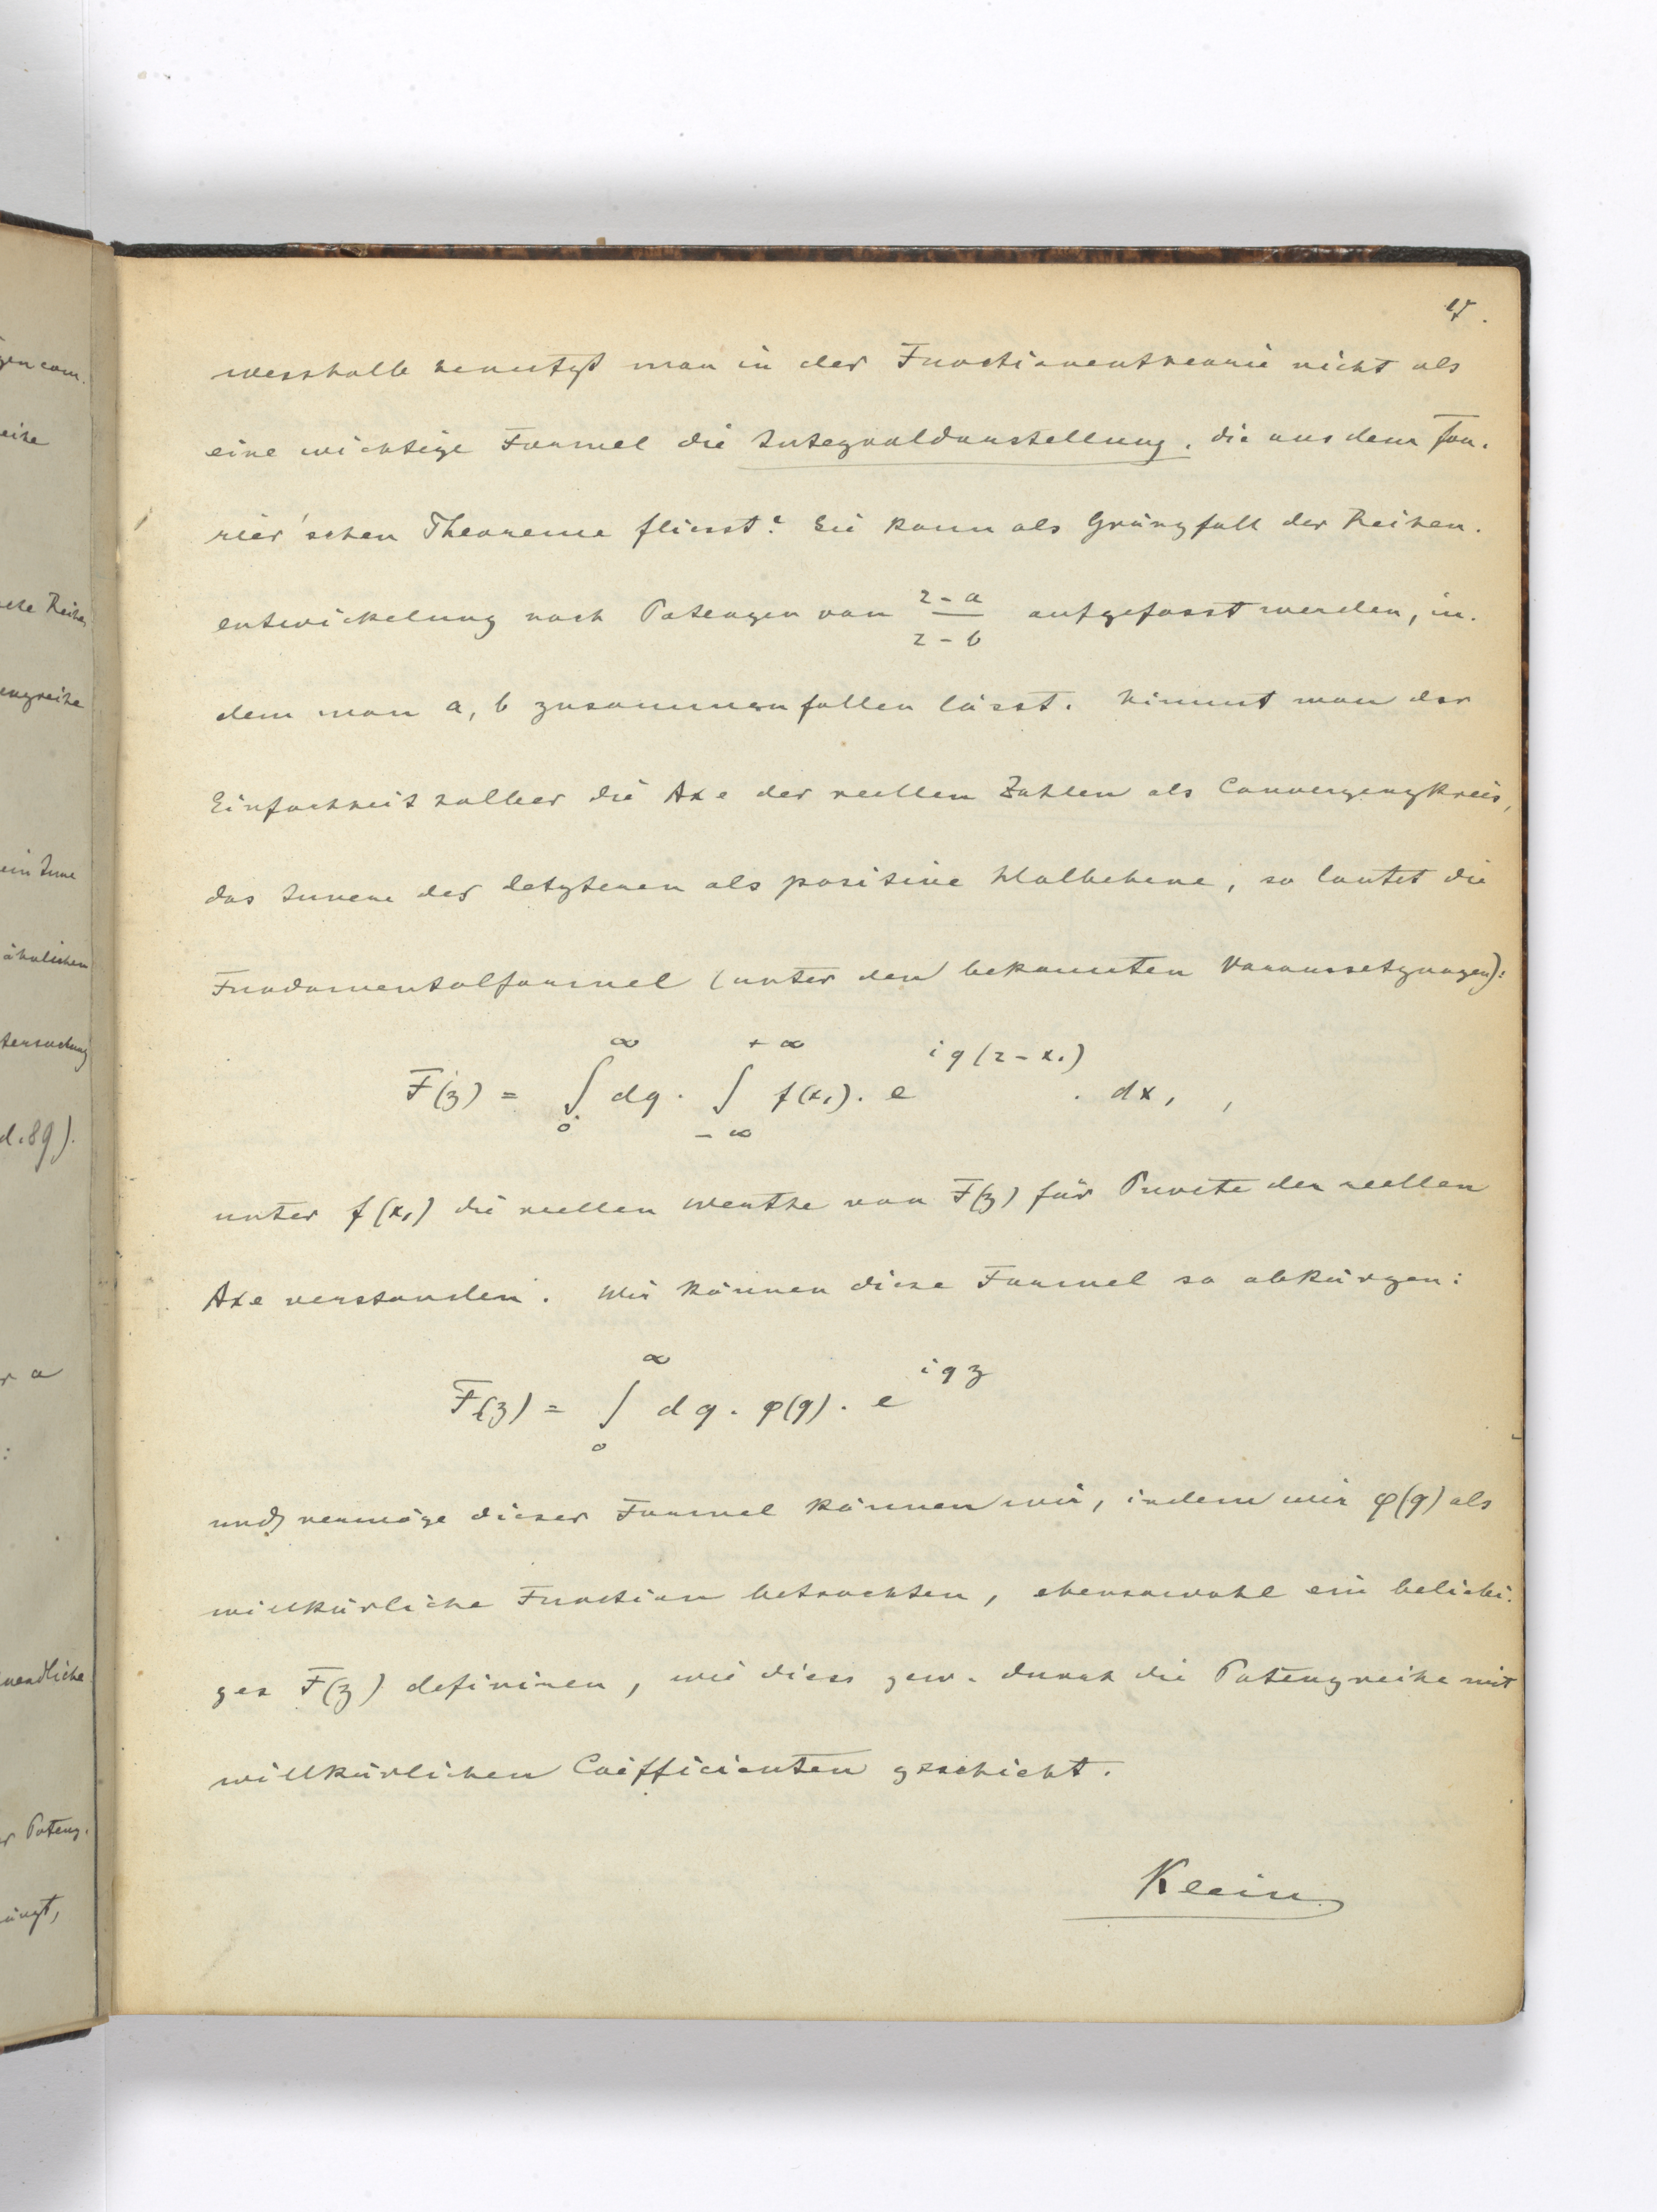 17.
wesshalb benutzt man in der Functionentheorie nicht als
eine wichtige Formel die Integraldarstellung, die aus dem Fou-
rier'schen Theoreme fliesst? Sie kann als Gränzfall der Reihen-
entwickelung nach Potenzen von (z - a)/(z - b) aufgefasst werden, in-
dem man a, b zusammenfallen lässt. Nimmt man der
Einfachheit halber die Axe der reellen Zahlen als Convergenzkreis,
das Innere der letzteren als positive Halbebene, so lautet die
Fundamentalformel (unter den bekannten Voraussetzungen):
F(z) = ∫₀^∞ dq · ∫₋∞^{+∞} f(x₁) · e^{iq(z - x₁)} · dx₁ ,
unter f(x₁) die reellen Werthe von F(z) für Puncte der reellen
Axe verstanden. Wir können diese Formel so abkürzen:
F(z) = ∫₀^∞ dq · φ(q) · e^{iqz}
und vermöge dieser Formel können wir, indem wir φ(q) als
willkürliche Function betrachten, ebensowohl ein beliebi-
ges F(z) definiren, wie diess gew. durch die Potenzreihe mit
willkürlichen Coefficienten geschieht.
Klein